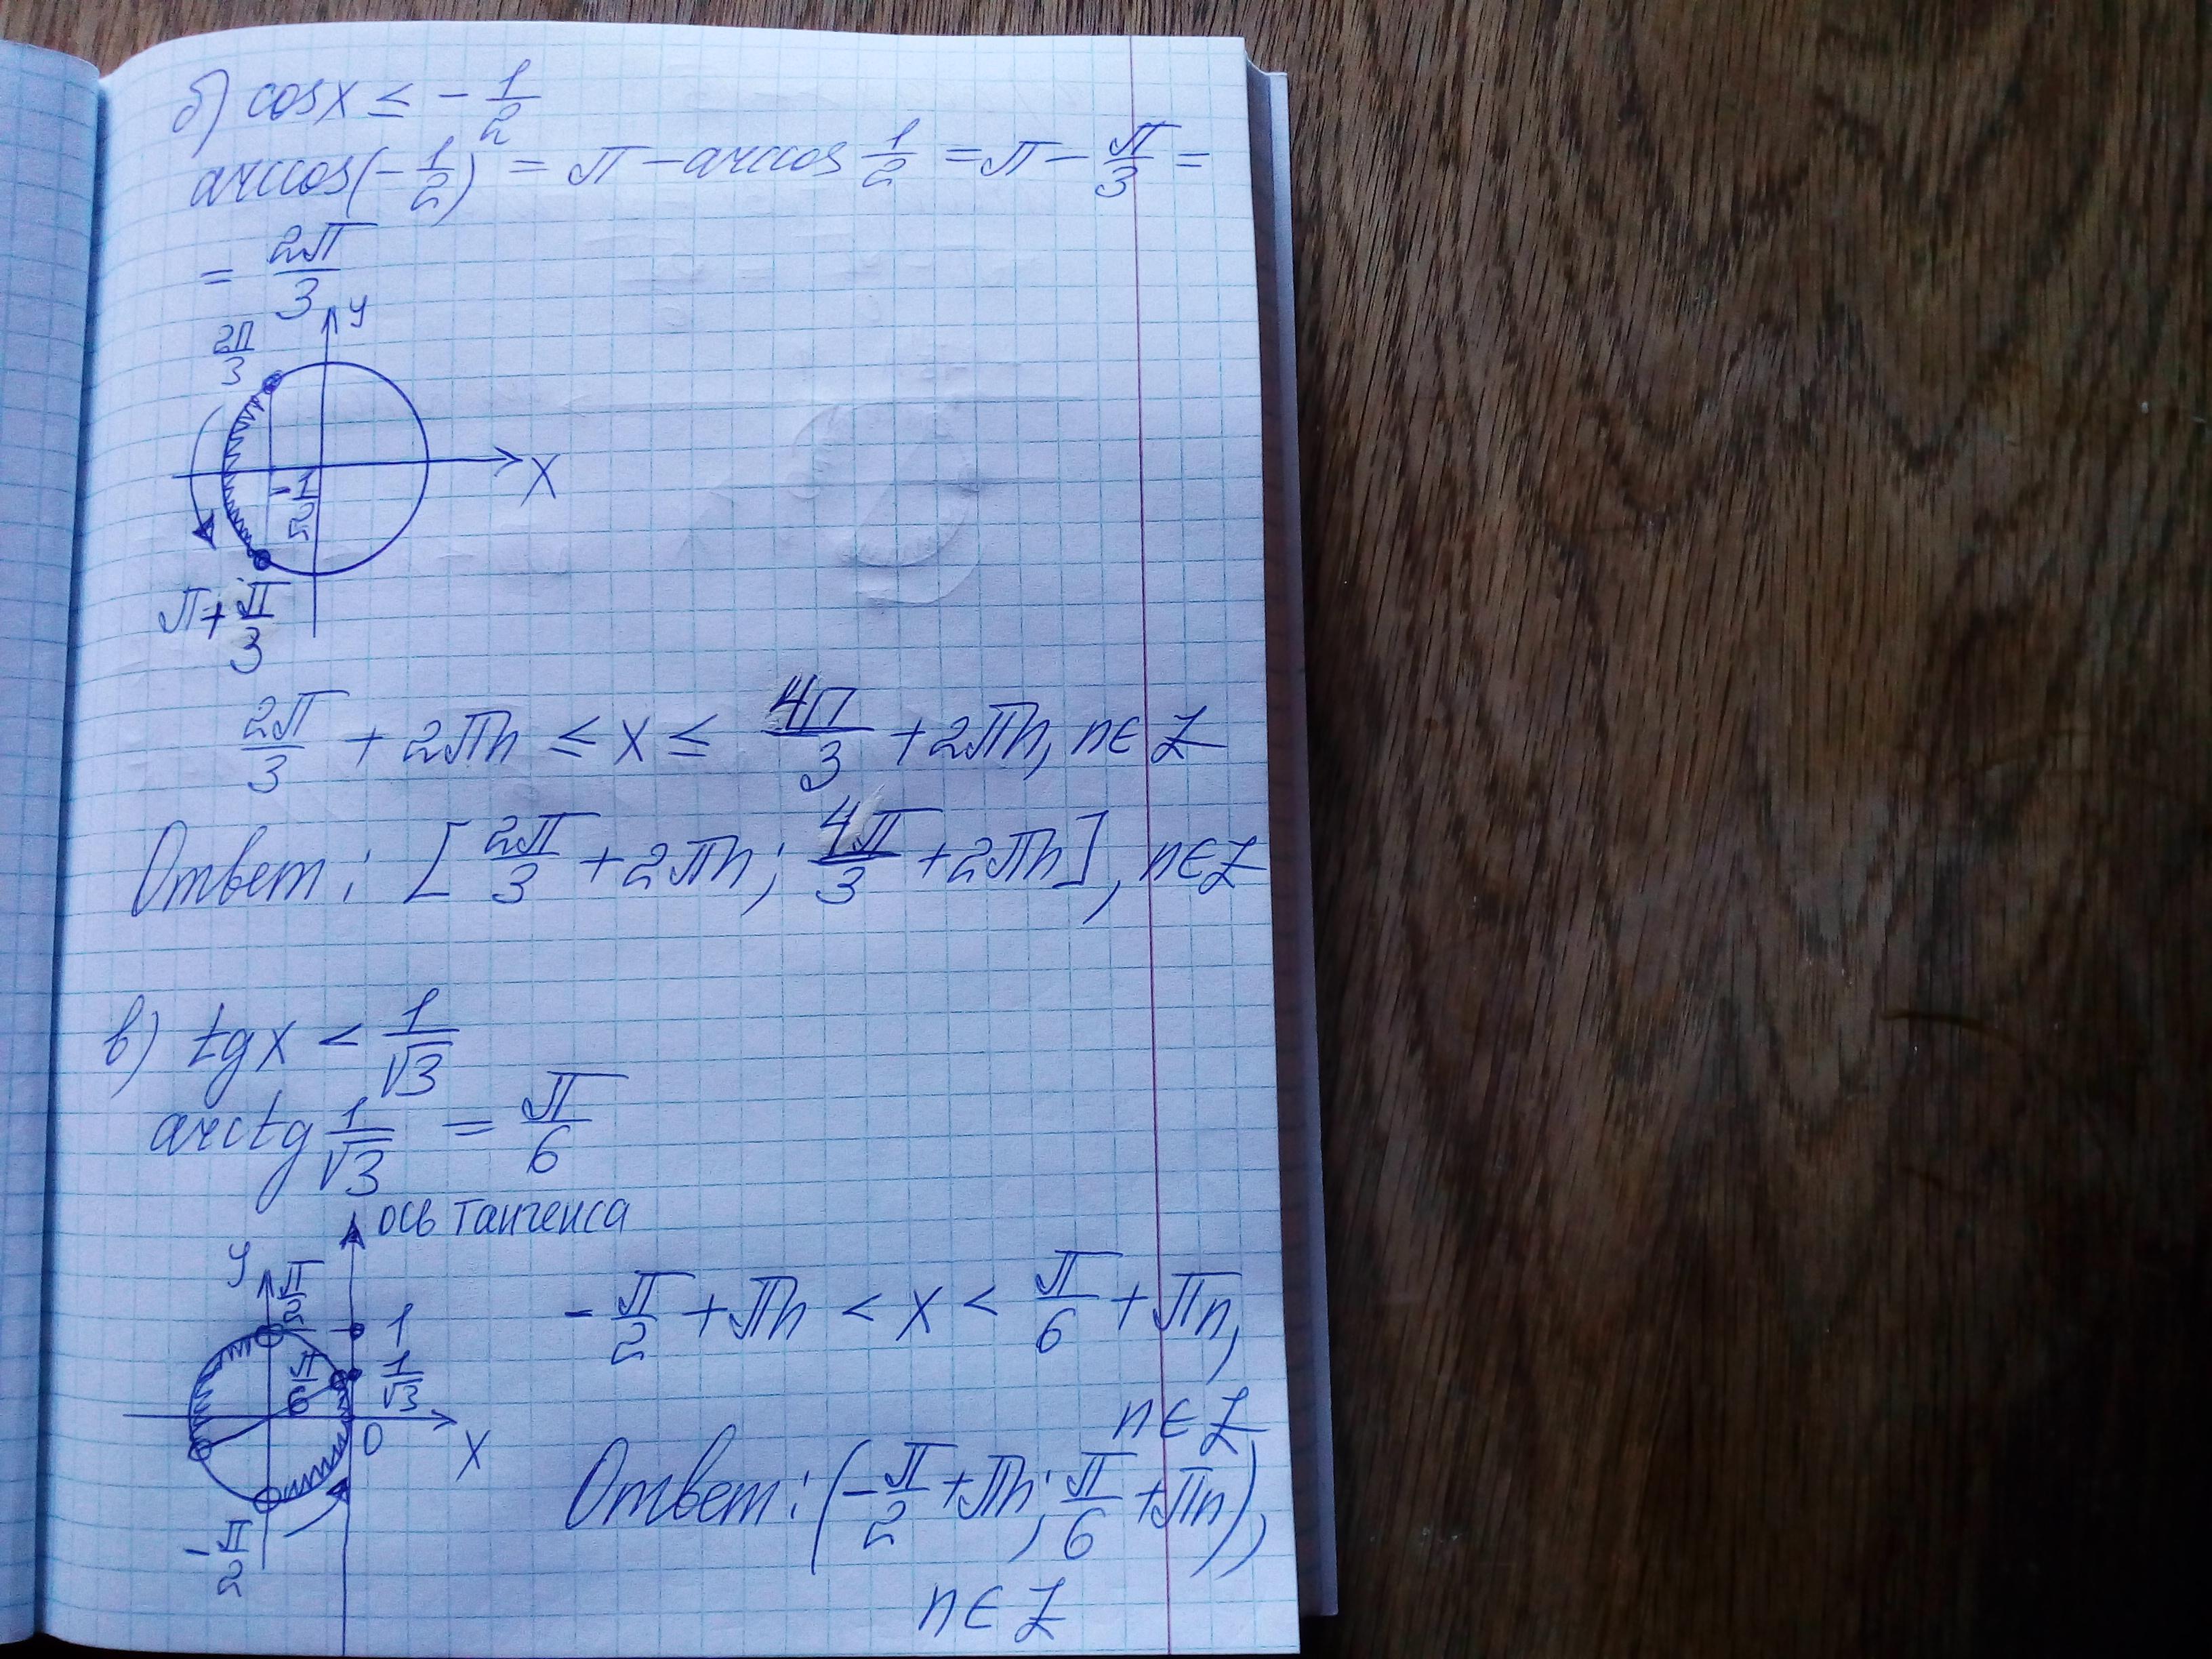 б) cosx ≤ - 1/2
arccos(-1/2) = π - arccos 1/2 = π - π/3 =
= 2π/3
y
2π/3
X
-1/2
π + π/3
2π/3 + 2πn ≤ x ≤ 4π/3 + 2πn, n∈Z
Ответ: [2π/3 + 2πn; 4π/3 + 2πn], n∈Z
в) tgx < 1/√3
arctg 1/√3 = π/6
ось тангенса
y
π/2
1
π/6
1/√3
0
X
-π/2
-π/2 + πn < x < π/6 + πn,
n∈Z
Ответ: (-π/2 + πn; π/6 + πn),
n∈Z